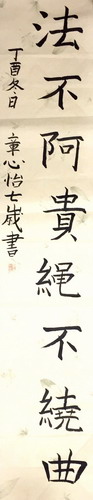 法不阿貴繩不繞曲
丁酉冬日 章心怡七歲書